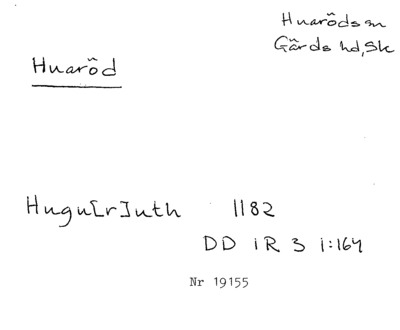 Huaröds sn
Gärds hd, Sk
Huaröd
Hugu[r]uth 1182
DD 1R 3 1:164
Nr 19155